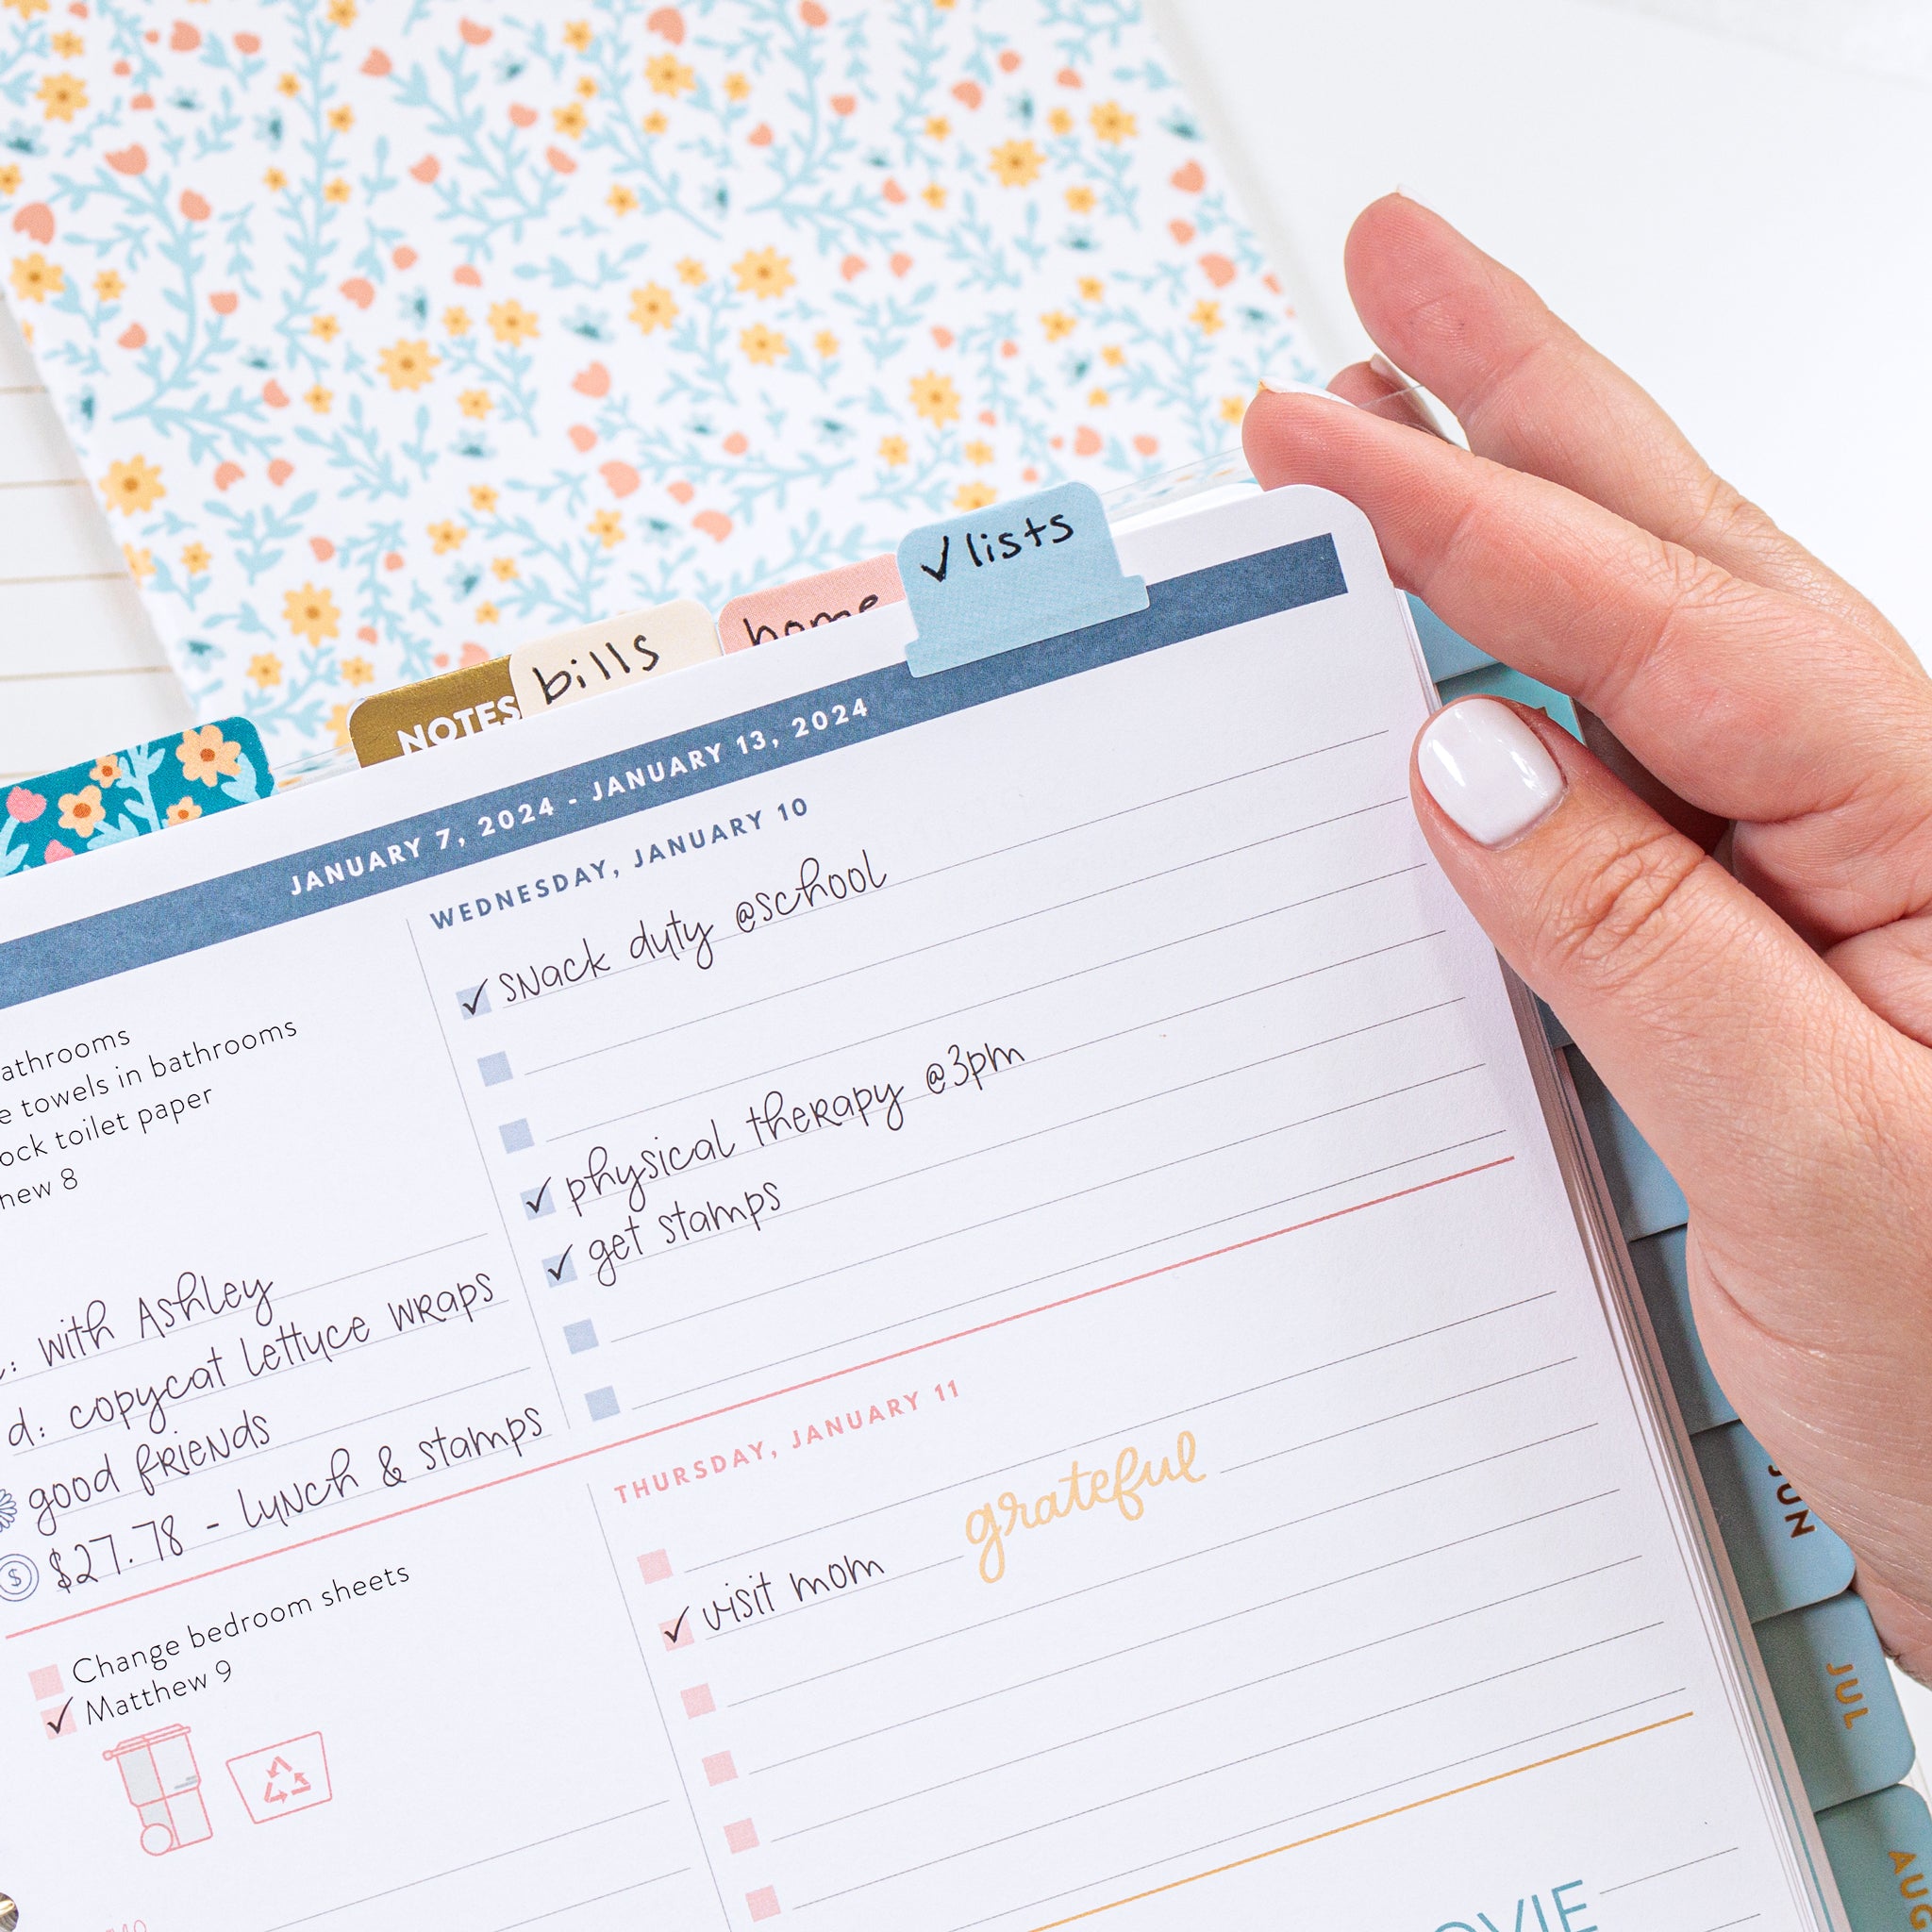 ✓ lists
home
bills
NOTES
JANUARY 7, 2024 - JANUARY 13, 2024
WEDNESDAY, JANUARY 10
✓ snack duty @school
✓ physical therapy @3pm
✓ get stamps
towels in bathrooms
toilet paper
8
: with Ashley
d: copycat lettuce wraps
good friends
$ $27.78 - lunch & stamps
THURSDAY, JANUARY 11
grateful
✓ visit mom
Change bedroom sheets
✓ Matthew 9
JUN
JUL
AUG